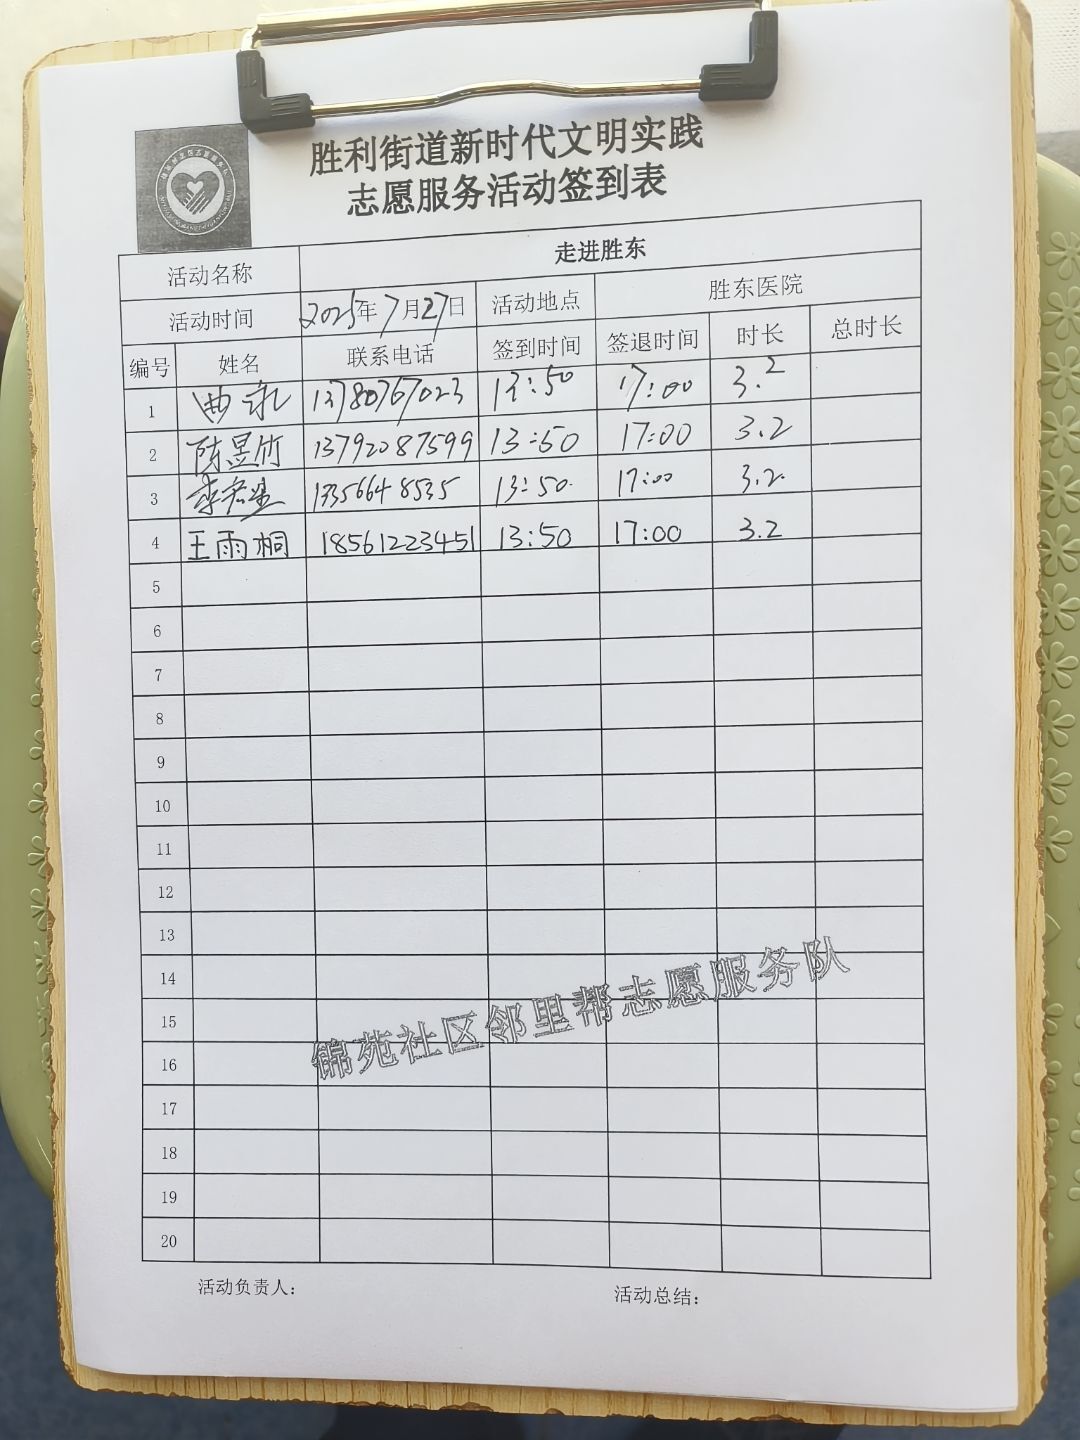 胜利街道新时代文明实践
志愿服务活动签到表
活动名称 走进胜东
活动时间 2025年7月27日 活动地点 胜东医院
编号 姓名 联系电话 签到时间 签退时间 时长 总时长
1 曲永 13780767023 13:50 17:00 3.2
2 陈昱竹 13792087599 13:50 17:00 3.2
3 13356648535 13:50 17:00 3.2
4 王雨桐 18561223451 13:50 17:00 3.2
5
6
7
8
9
10
11
12
13
14
15
16
17
18
19
20
锦苑社区邻里帮志愿服务队
活动负责人： 活动总结：